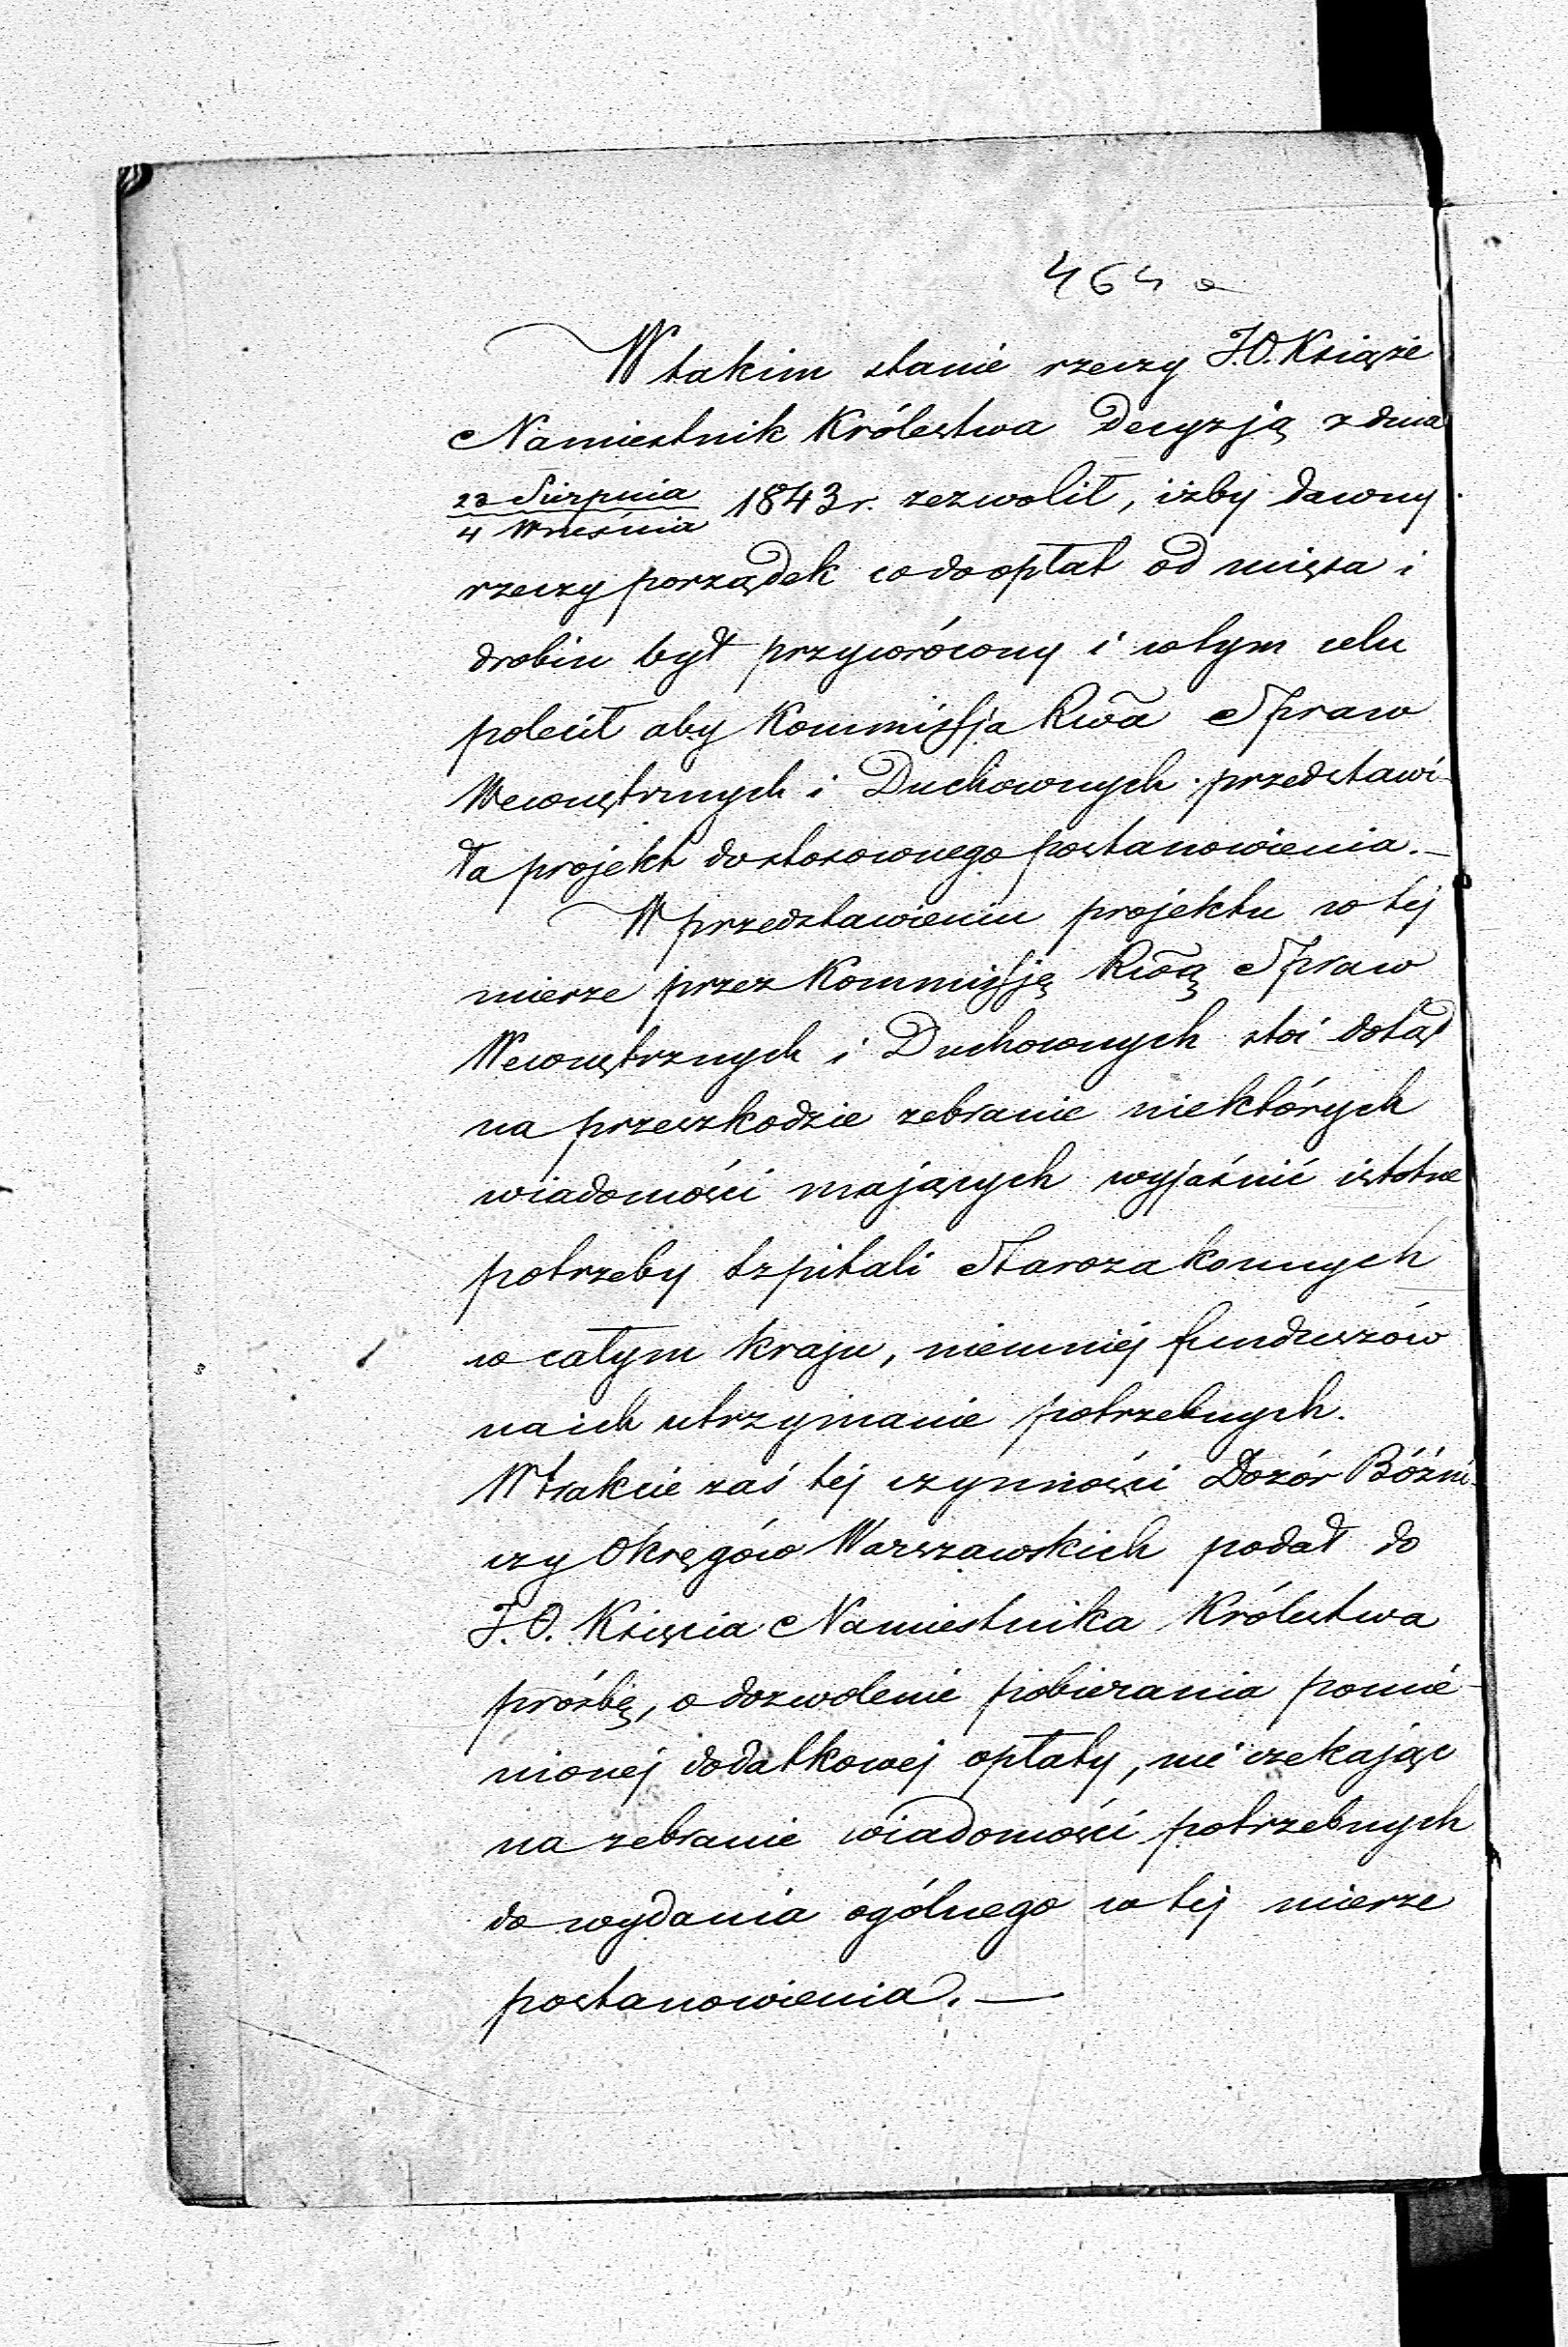 464 a
W takim stanie rzeczy J.O. Książe
Namiestnik Królestwa Decyzją z dnia
23 Sierpnia / 4 Września 1843 r. zezwolił, iżby dawny
rzeczy porządek co do opłat od mięsa i
drobiu był przywrócony i w tym celu
polecił aby Kommissja Rwa Spraw
Wewnętrznych i Duchownych przedstawi-
ła projekt do stosownego postanowienia.—
W przedstawieniu projektu w tej
mierze przez Kommissję Rwą Spraw
Wewnętrznych i Duchownych stoi dotąd
na przeszkodzie zebranie niektórych
wiadomości mających wyjaśnić istotne
potrzeby szpitali Starozakonnych
w całym kraju, niemniej funduszów
na ich utrzymanie potrzebnych.
W trakcie zaś tej czynności Dozór Bóźni-
czy Okręgów Warszawskich podał do
J.O. Księcia Namiestnika Królestwa
prośbę, o dozwolenie pobierania pomie-
nionej dodatkowej opłaty, nie czekając
na zebranie wiadomości potrzebnych
do wydania ogólnego w tej mierze
postanowienia.—